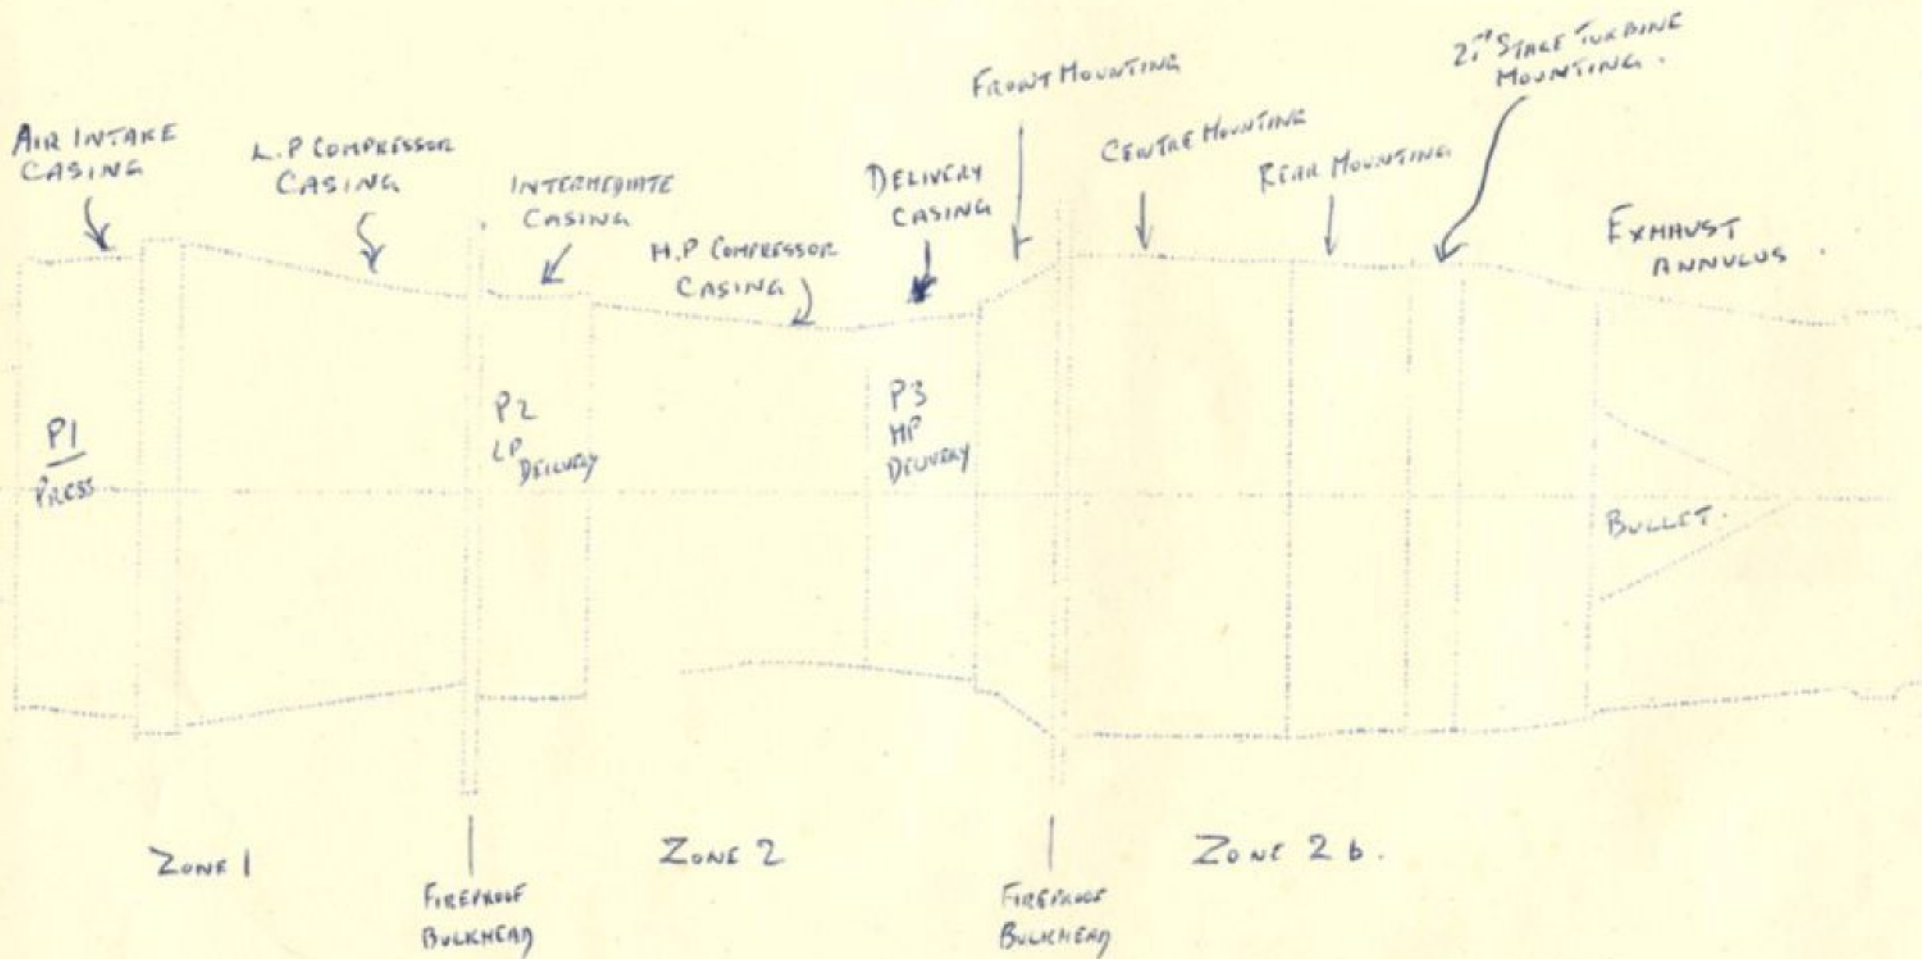 AIR INTAKE
CASING
L.P COMPRESSOR
CASING
INTERMEDIATE
CASING
H.P COMPRESSOR
CASING
DELIVERY
CASING
FRONT MOUNTING
CENTRE MOUNTING
REAR MOUNTING
2nd STAGE TURBINE
MOUNTING.
EXHAUST
ANNULUS.
P1
PRESS
P2
LP
DELIVERY
P3
HP
DELIVERY
BULLET.
ZONE 1
ZONE 2
ZONE 2 b.
FIREPROOF
BULKHEAD
FIREPROOF
BULKHEAD